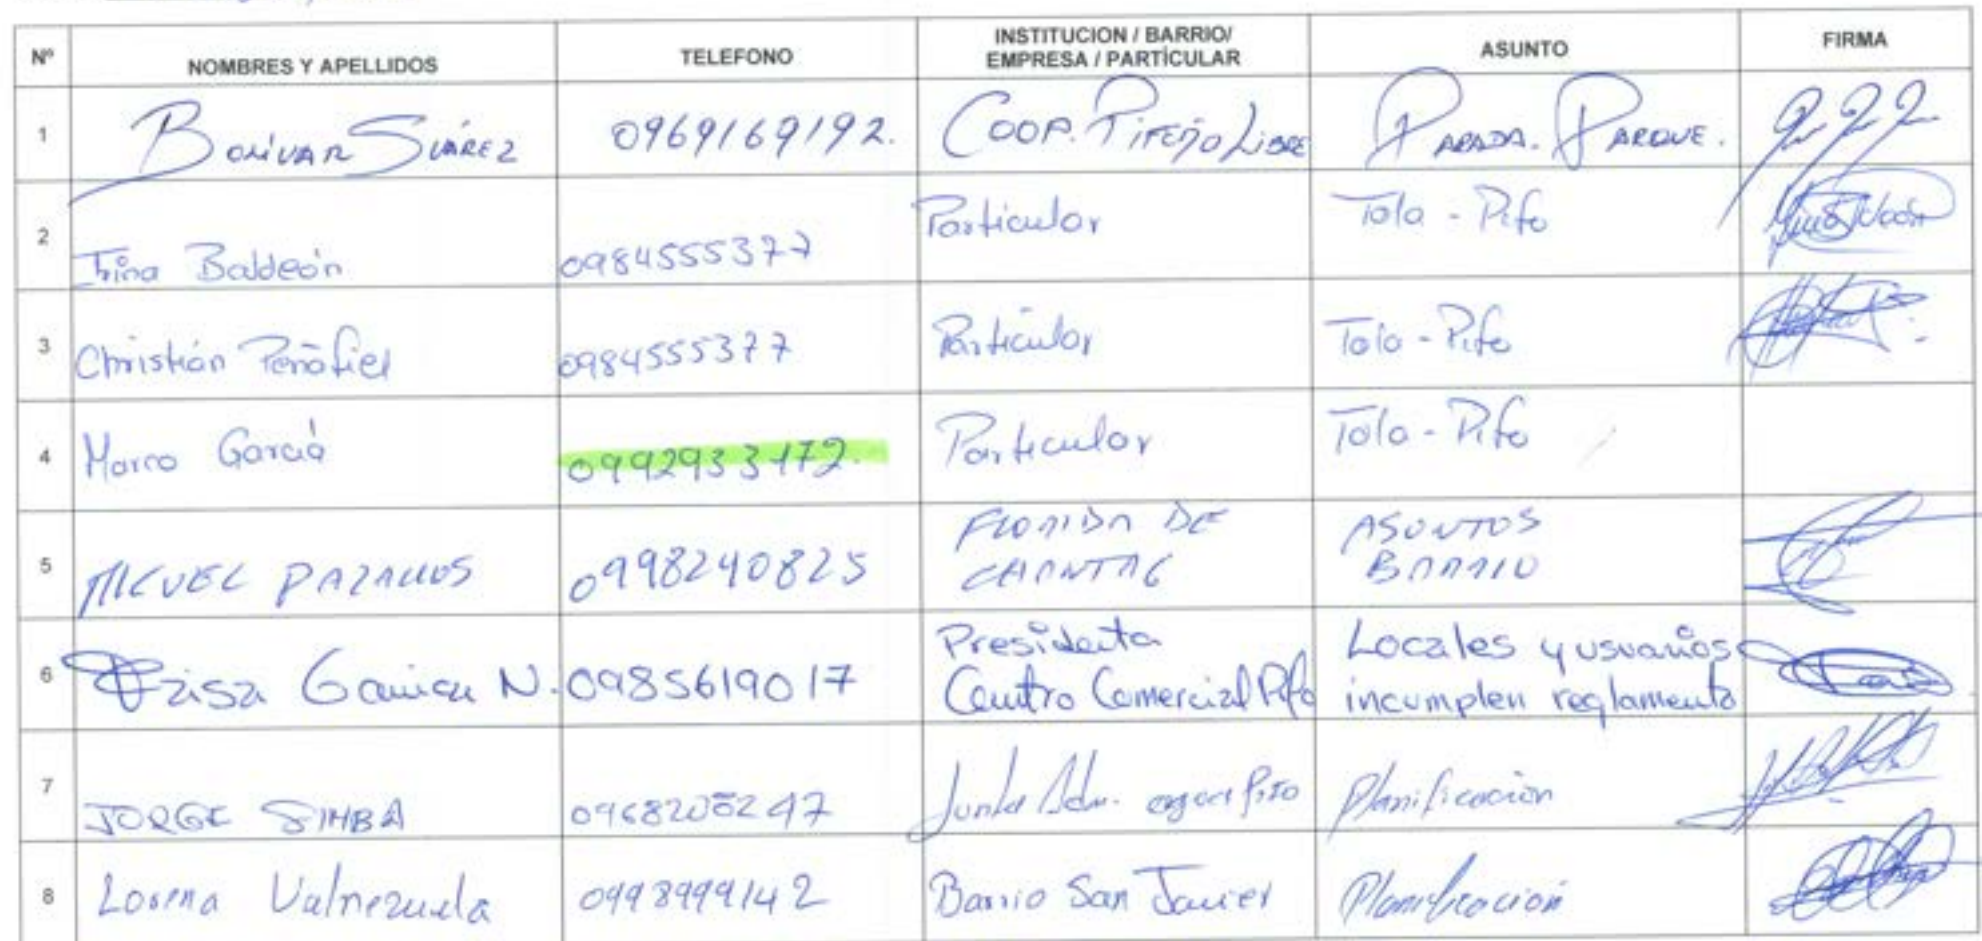 Nº NOMBRES Y APELLIDOS TELEFONO INSTITUCION / BARRIO/ EMPRESA / PARTÍCULAR ASUNTO FIRMA
1 BOLÍVAR SUÁREZ 0969169192. COOP. PIFEÑO LIBRE PARADA. PARQUE.
2 Irina Baldeón 0984555377 Particular Tola - Pifo
3 Christián Peñafiel 0984555377 Particular Tola - Pifo
4 Marco García 0992933172. Particular Tola - Pifo
5 MIGUEL 0998240825 FLORIDA DE ASUNTOS BARRIO
6 N. 0985619017 Presidenta Centro Comercial Pifo Locales y usuarios incumplen reglamento
7 JORGE SIMBA 0968208247 Junta Adm. Pifo Planificación
8 Lorena 0998999142 Barrio San Javier Planificación